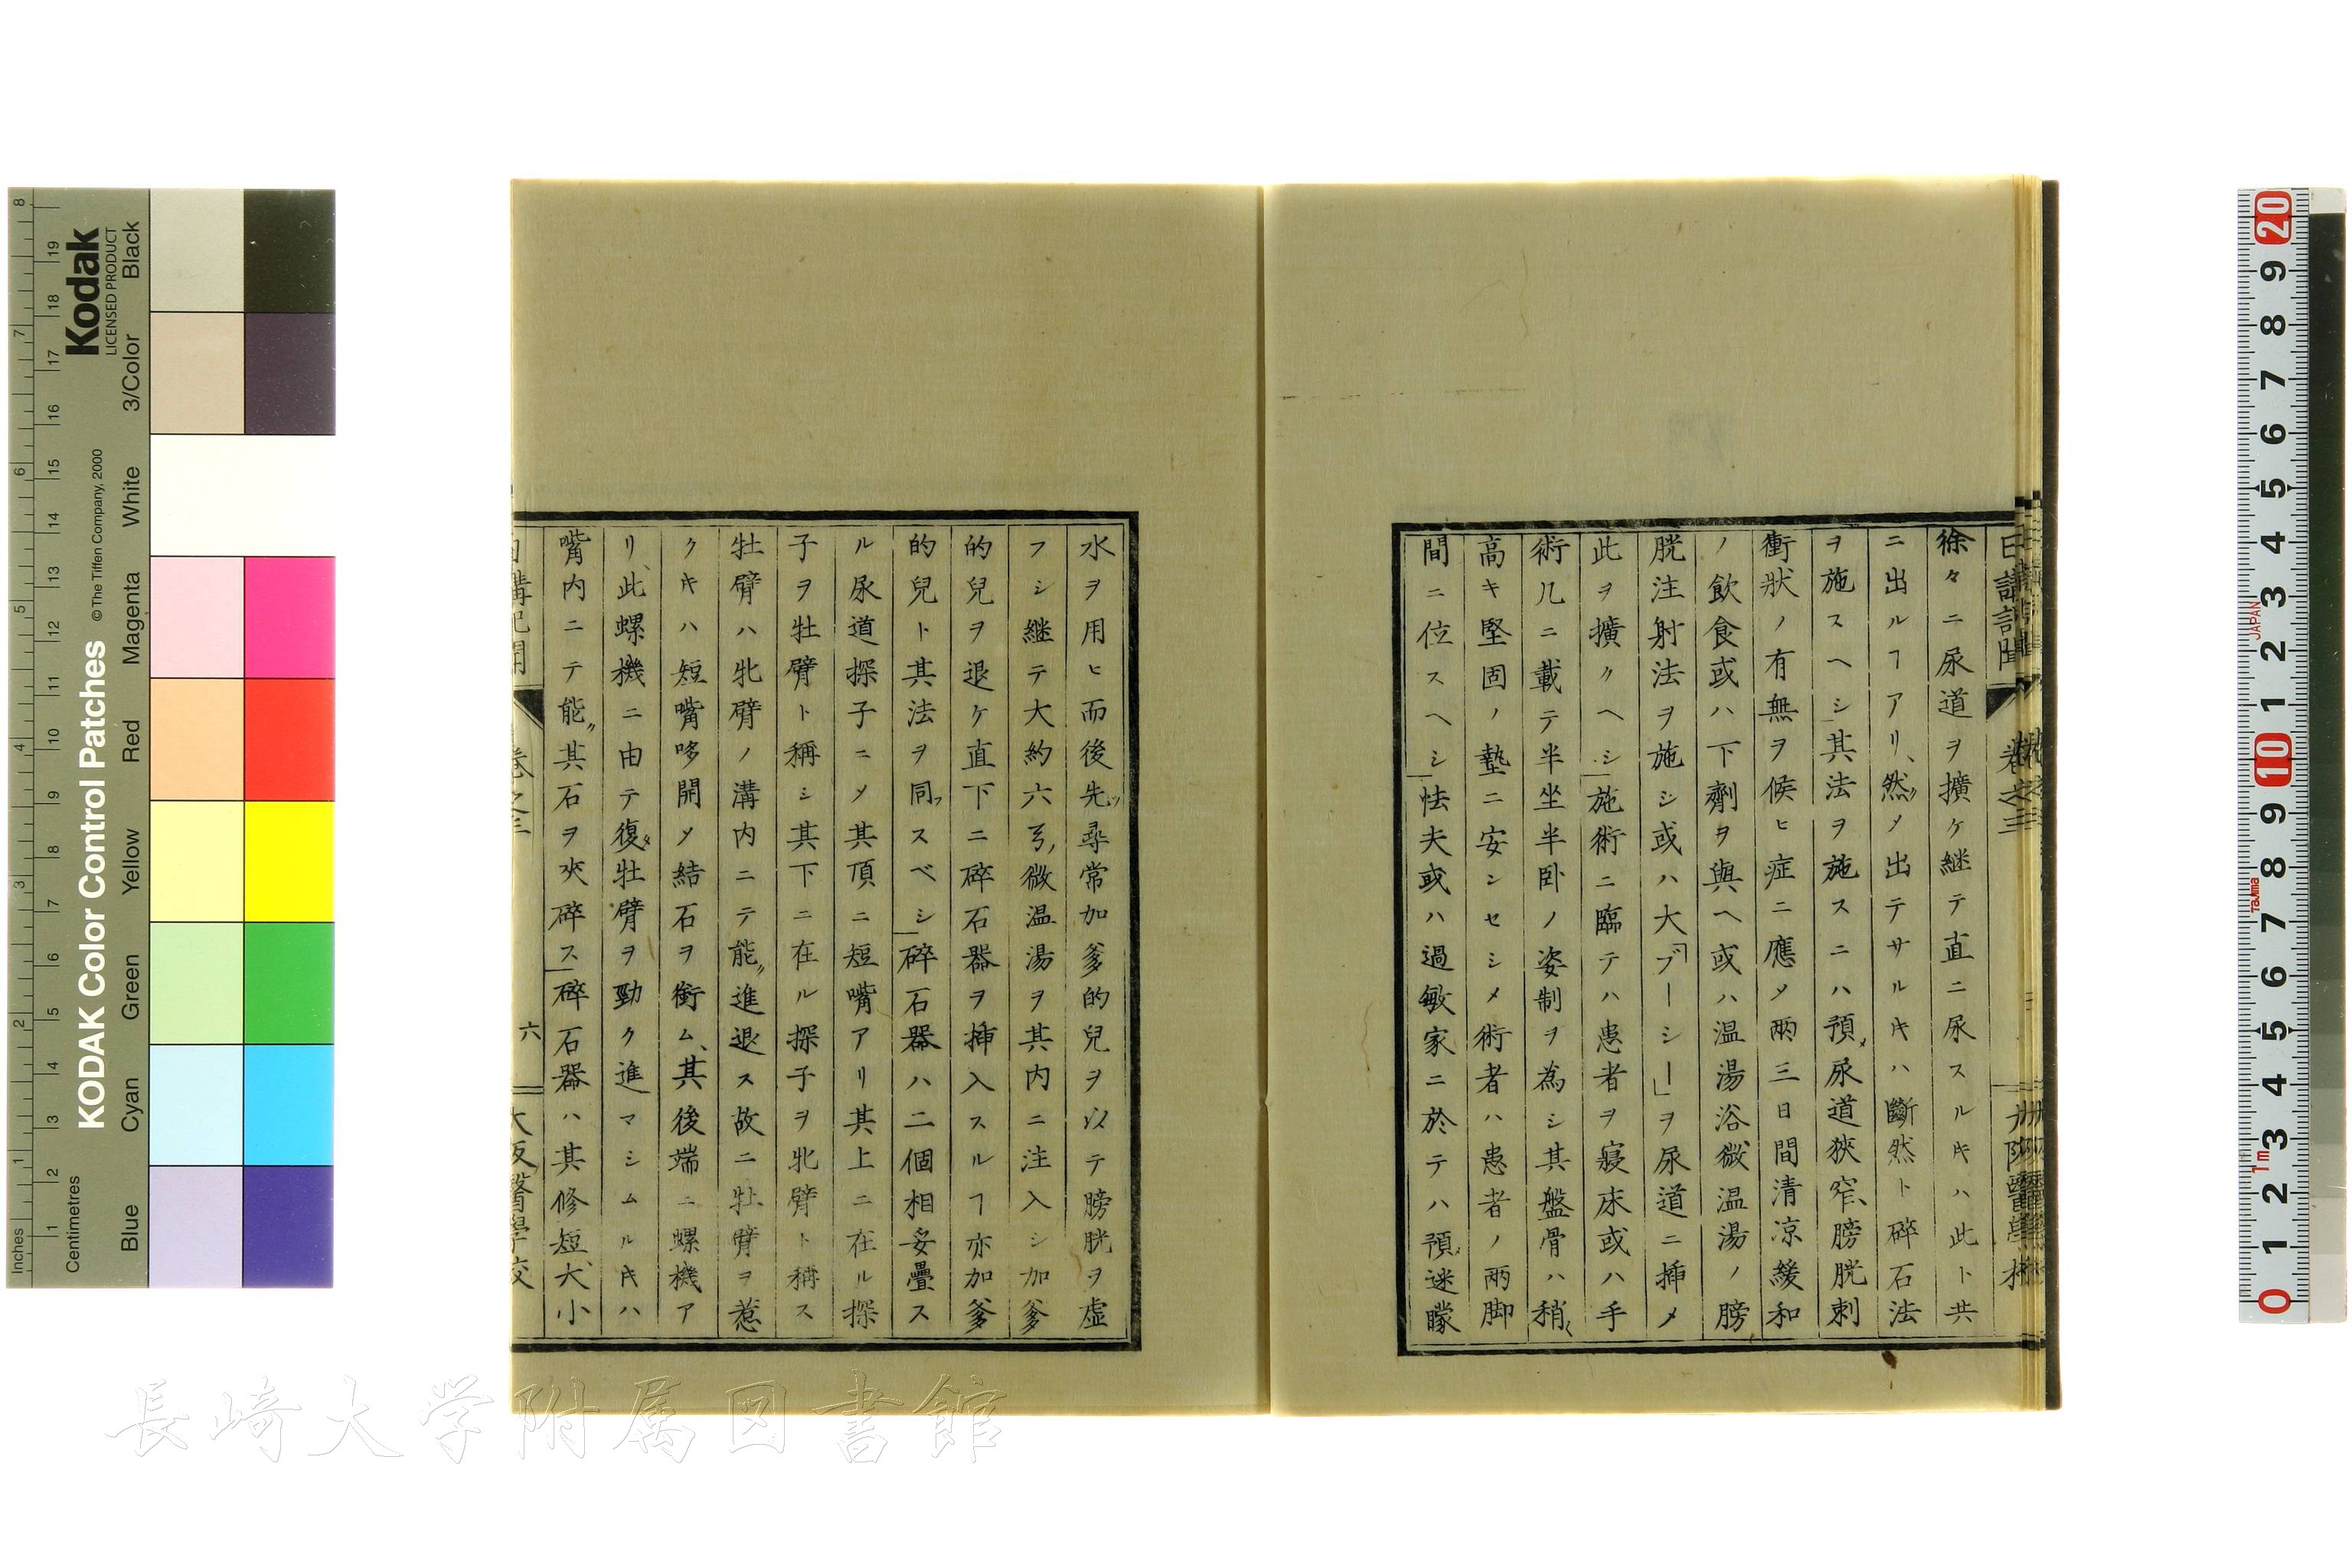 日講記聞 卷之三
徐々ニ尿道ヲ擴ケ継テ直ニ尿スル𪜈ハ此ト共
ニ出ルヿアリ、然〃メ出テサル𪜈ハ斷然ト碎石法
ヲ施スヘシ其法ヲ施スニハ預メ尿道狹窄、膀胱刺
衝狀ノ有無ヲ候ヒ症ニ應メ兩三日間清凉緩和
ノ飲食或ハ下劑ヲ與ヘ或ハ温湯浴微温湯ノ膀
胱注射法ヲ施シ或ハ大「ブーシー」ヲ尿道ニ挿メ
此ヲ擴クヘシ施術ニ臨テハ患者ヲ寢床或ハ手
術几ニ載テ半坐半卧ノ姿制ヲ為シ其盤骨ハ稍〻
高キ堅固ノ墊ニ安ンセシメ術者ハ患者ノ兩脚
間ニ位スヘシ怯夫或ハ過敏家ニ於テハ預メ迷矇
水ヲ用ヒ而後先ツ尋常加爹的兒ヲ以テ膀胱ヲ虚
フシ継テ大約六弓、微温湯ヲ其内ニ注入シ加爹
的兒ヲ退ケ直下ニ碎石器ヲ挿入スルヿ亦加爹
的兒ト其法ヲ同フスベシ碎石器ハ二個相妥疊ス
ル尿道探子ニメ其頂ニ短嘴アリ其上ニ在ル探
子ヲ牡臂ト稱シ其下ニ在ル探子ヲ牝臂ト稱ス
牡臂ハ牝臂ノ溝内ニテ能〃進退ス故ニ牡臂ヲ惹
ク𪜈ハ短嘴哆開メ結石ヲ銜ム、其後端ニ螺機ア
リ、此螺機ニ由テ復タ牡臂ヲ勁ク進マシムル𪜈ハ
嘴内ニテ能〃其石ヲ夾碎ス碎石器ハ其修短、大小
日講記聞 卷之三 六 大阪醫學校
KODAK Color Control Patches
Kodak LICENSED PRODUCT
© The Tiffen Company, 2000
Inches
Centimetres
Blue Cyan Green Yellow Red Magenta White 3/Color Black
JAPAN
Tajima
1m
長崎大学附属図書館